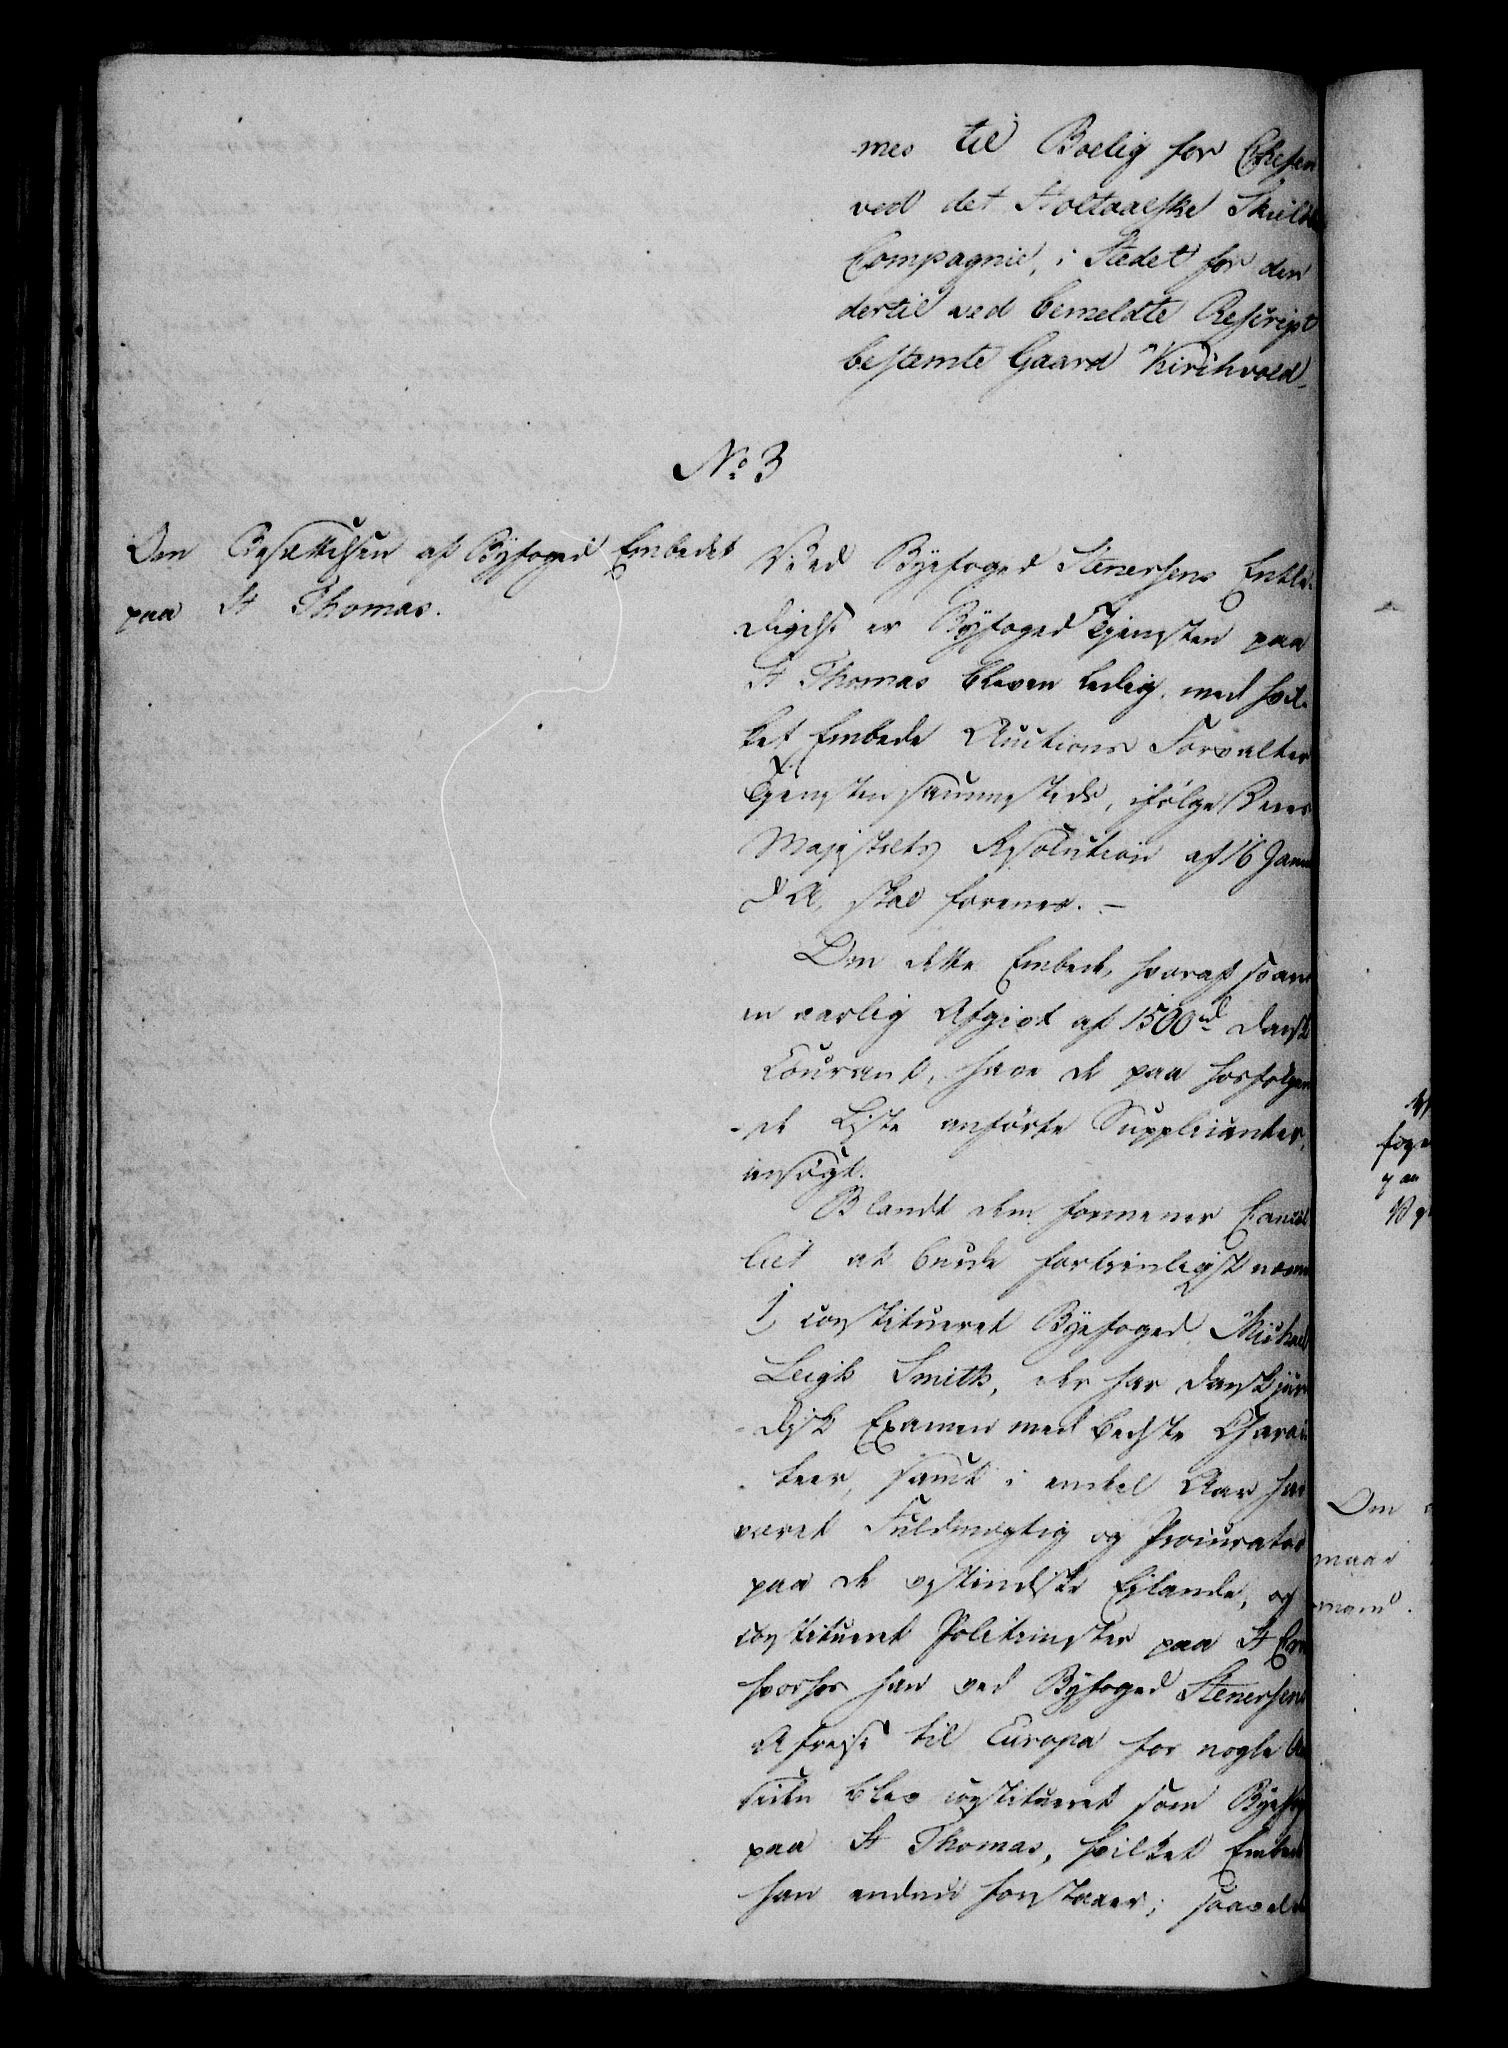 mes til Boelig for Chefen
ved det Holtaalske Skielöb
Compagnie, i Stedet for den
dertil ved bemeldte Rescript
bestemte Gaard Kirchvold.
No 3
Om Besættelsen af Byfoged Embedet
paa St Thomas.
Ved Byefoged Stenersens Entle-
digelse er Byfoged Tjenesten paa
St Thomas bleven ledig, med hvil-
ket Embede Auctions Forvalter
Tjenesten sammesteds, ifølge Deres
Majestæts Resolution af 16 Janu
d. A, skal forenes. -
Om dette Embede, hvoraf svares
en aarlig Afgivt af 1500 rd dansk
Courant, have de paa hosfølgen
-de Liste anførte Supplicanter,
ansøgt.
Blandt dem formener Cancel
liet at burde fortrinligst nævne
1, constitueret Byefoged Michael
Leigh Smith, der har dansk juri
-disk Examen med bedste Charac
teer, samt i endeel Aar har
været Fuldmægtig og Procurator
paa de vestindiske Eilande, og
constitueret Politiemester paa St Croix
hvorfor han ved Byfoged Stenersens
Afreise til Europa for nogle Aar
siden blev constitueret som Byefoged
paa St Thomas, hvilket Embede
han endnu forestaaer; saavel
foge
paa
Om
maa
mand.